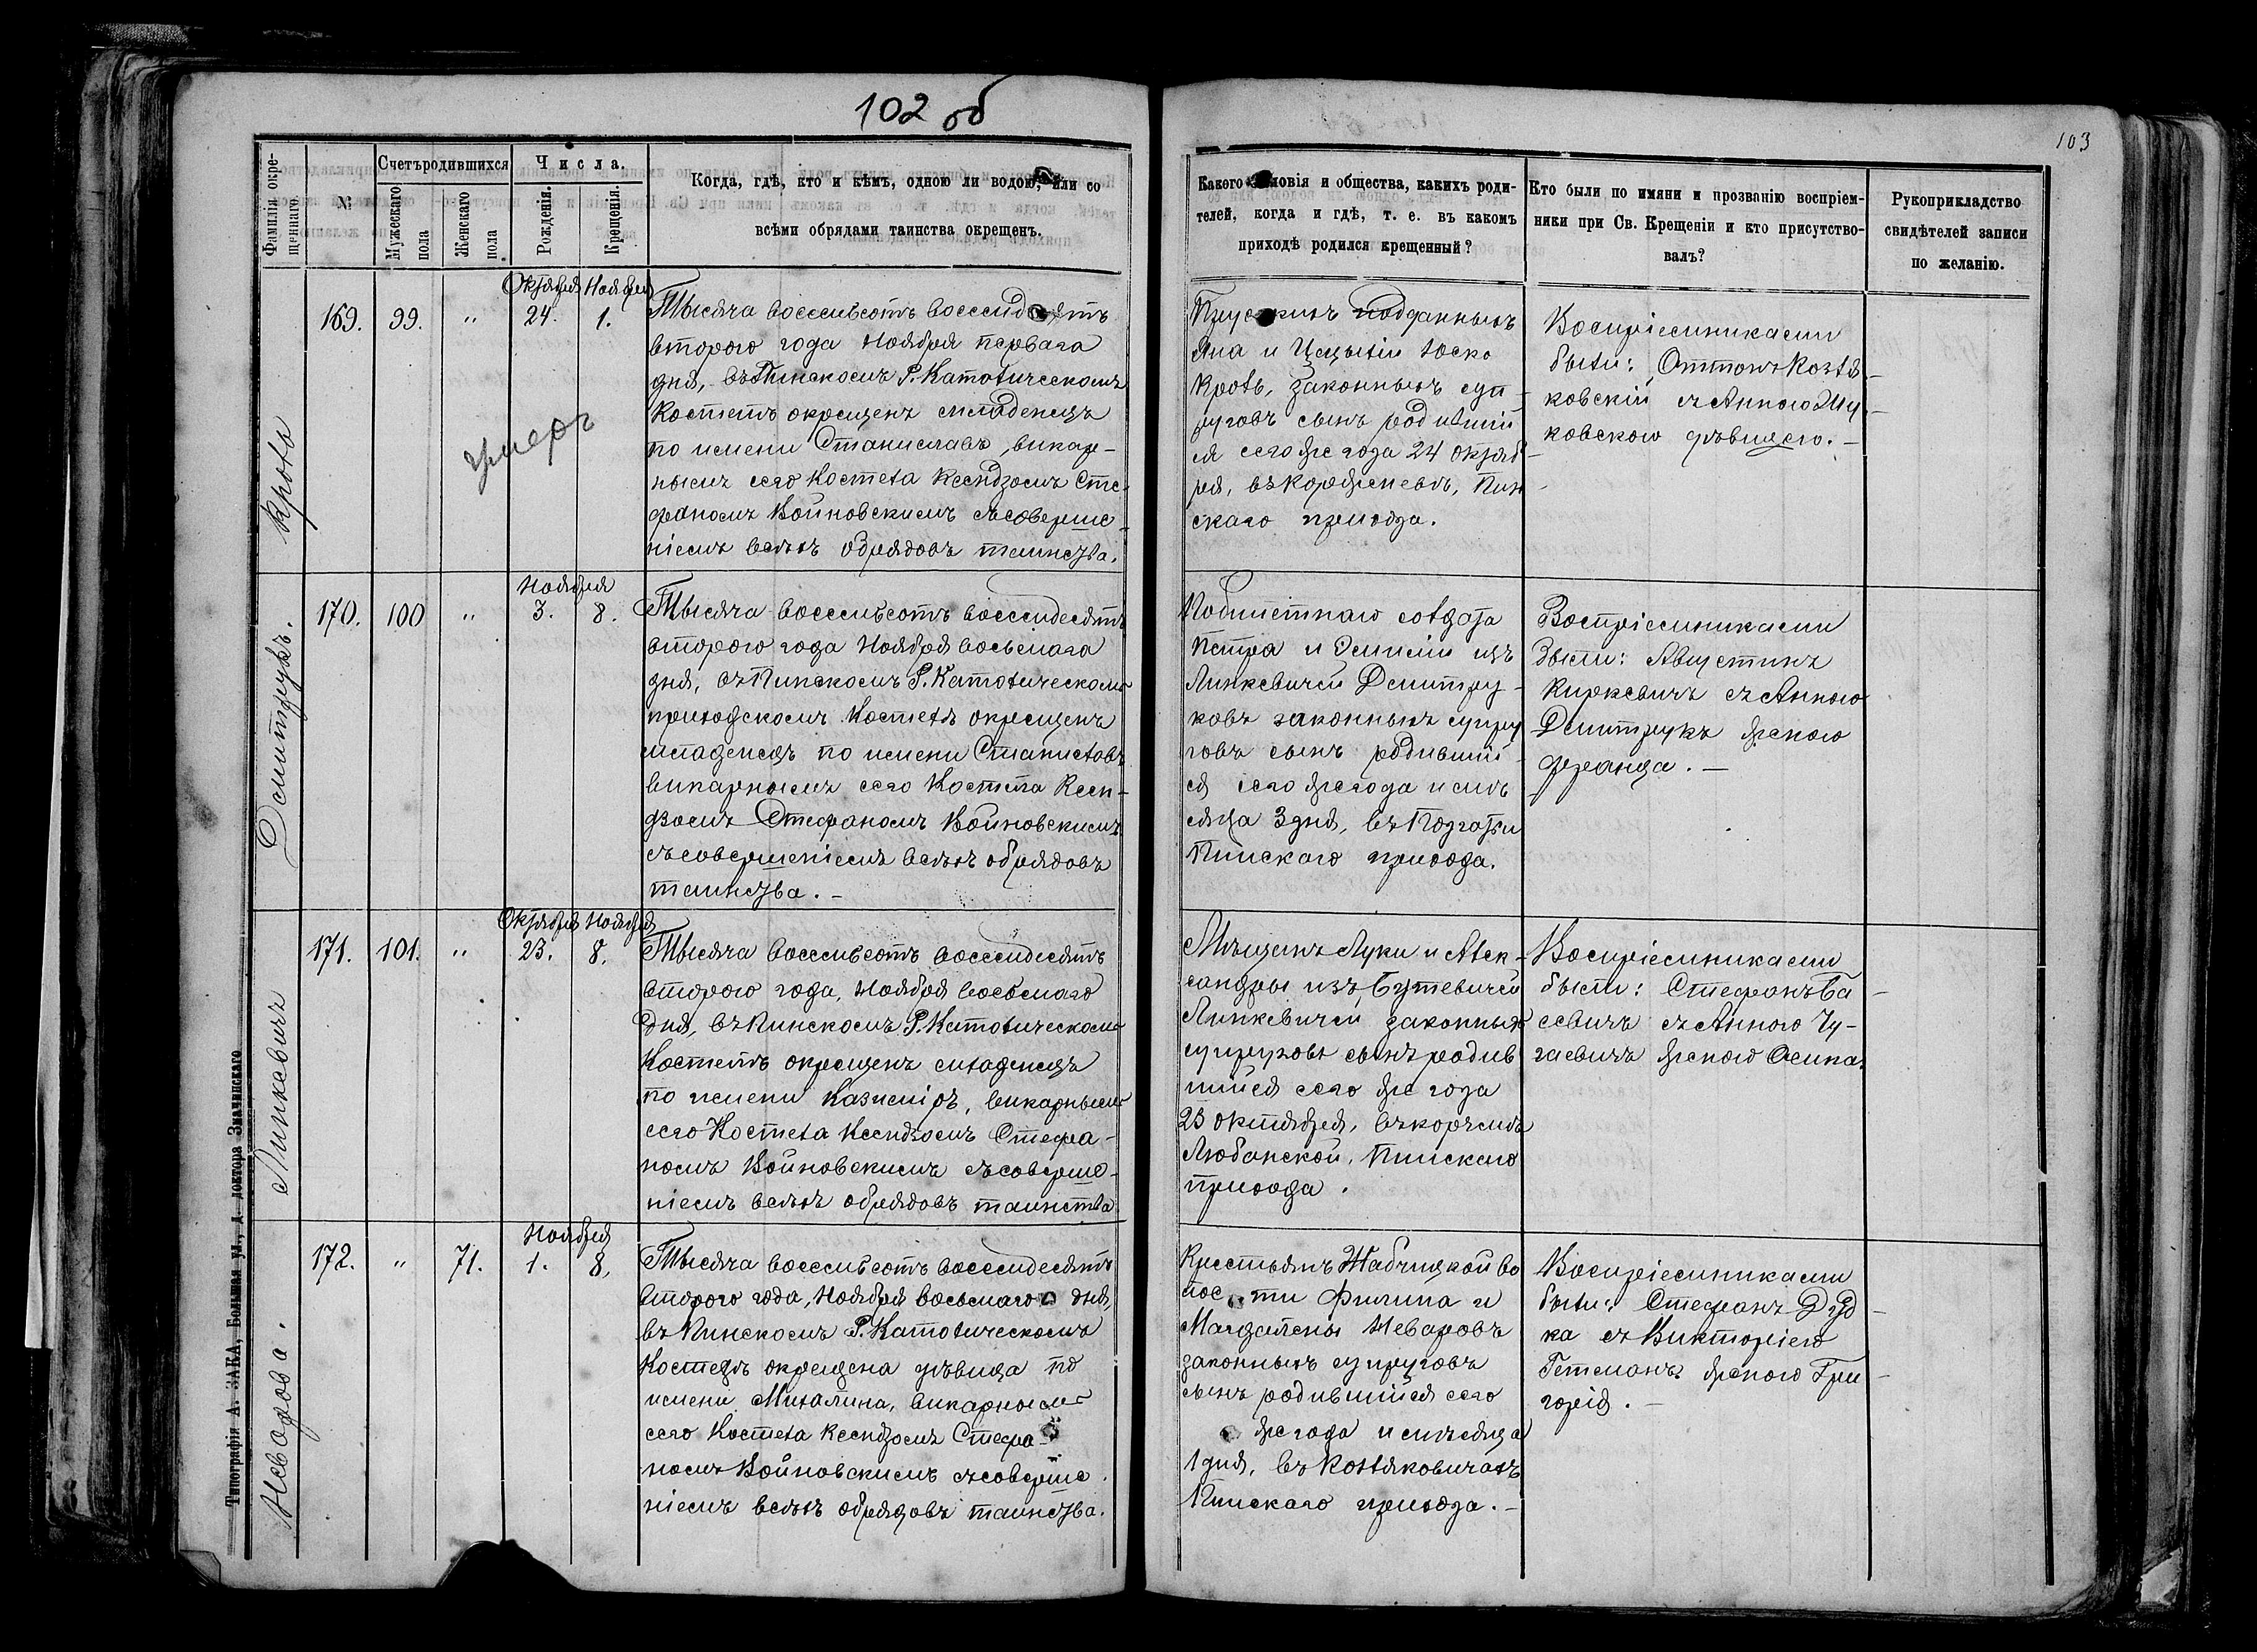 102 об
103
Фамилія окре-
щеннаго.
№
Счетъ родившихся
Мужескаго
пола
Женскаго
пола
Числа.
Рожденія.
Крещенія.
Когда, гдѣ, кто и кѣмъ, одною ли водою, или со
всѣми обрядами таинства окрещенъ.
Какого словія и общества, какихъ роди-
телей, когда и гдѣ, т. е. въ какомъ
приходѣ родился крещенный?
Кто были по имяни и прозванію воспріем-
ники при Св. Крещеніи и кто присутство-
валъ?
Рукоприкладство
свидѣтелей записи
по желанію.
Кроль
169.
99.
"
Октября
24.
Ноября
1.
умеръ
Тысяча восемьсотъ восемьдесятъ
втораго года Ноября перваго
дня, въ Пинскомъ Р. Католическомъ
Костелѣ окрещенъ младенецъ
по имени Станиславъ, викар-
нымъ сего Костела Ксендзомъ Сте-
фаномъ Войновскимъ съ соверше-
ніемъ всѣхъ обрядовъ таинства.
Прускихъ подданныхъ
Яна и
Кроль, законныхъ суп-
руговъ сынъ родивший
ся сего же года 24 октяб-
ря, въ Пин-
скаго прихода.
Воспріемниками
были: Оттонъ Козля-
ковскій съ Анною Жу-
ковскою дѣвицею.
Дмитрукъ.
170.
100
"
Ноября
3.
8.
Тысяча восемьсотъ восемьдесятъ
втораго года Ноября восьмаго
дня, въ Пинскомъ Р. Католическомъ
приходскомъ Костелѣ окрещенъ
младенецъ по имени Станиславъ
викарнымъ сего Костела Ксен-
дзомъ Стефаномъ Войновскимъ
съ совершеніемъ всѣхъ обрядовъ
таинства. –
солдата
Петра и Эмиліи изъ
Линкевичей Дмитру-
ковъ законныхъ супру
говъ сынъ родивший-
ся сего же года и мѣ
сяца 3 дня, въ Подгатьи
Пинскаго прихода.
Воспріемниками
были: Августинъ
Киркевичъ съ Анною
Дмитрукъ женою
Франца. –
Линкевичъ
171.
101.
"
Октября
23.
Ноября
8.
Тысяча восемьсотъ восемьдесятъ
втораго года, Ноября восьмаго
дня, въ Пинскомъ Р. Католическомъ
Костелѣ окрещенъ младенецъ
по имени Казиміръ, викарнымъ
сего Костела Ксендзомъ Стефа-
номъ Войновскимъ съ соверше-
ніемъ всѣхъ обрядовъ таинства
Мѣщанъ Луки и Алек-
сандры изъ Бутевичей
Линкевичей законныхъ
супруговъ сынъ родив
шийся сего же года
23 октября, въ корчмѣ
Любанской, Пинскаго
прихода.
Воспріемниками
были: Стефанъ Ба-
севичъ съ Анною Чу-
гаевичъ женою Осипа.
Неводова.
172.
"
71.
Ноября
1.
8.
Тысяча восемьсотъ восемьдесятъ
втораго года, Ноября восьмаго дня,
въ Пинскомъ Р. Католическомъ
Костелѣ окрещена дѣвица по
имени Михалина, викарнымъ
сего Костела Ксендзомъ Стефа-
номъ Войновскимъ съ соверше
ніемъ всѣхъ обрядовъ таинства.
Крестьянъ Жабчицкой во
лости Филипа и
Магдалены
законныхъ супруговъ
сынъ родившийся сего
же года и мѣсяца
1 дня, въ Козляковичахъ
Пинскаго прихода. –
Воспріемниками
были: Стефанъ Дуд-
ка съ Викторіею
Гетманъ женою Гри-
горія. –
Типографія А. ЗАКА, Большая ул., д. доктора Знаменскаго